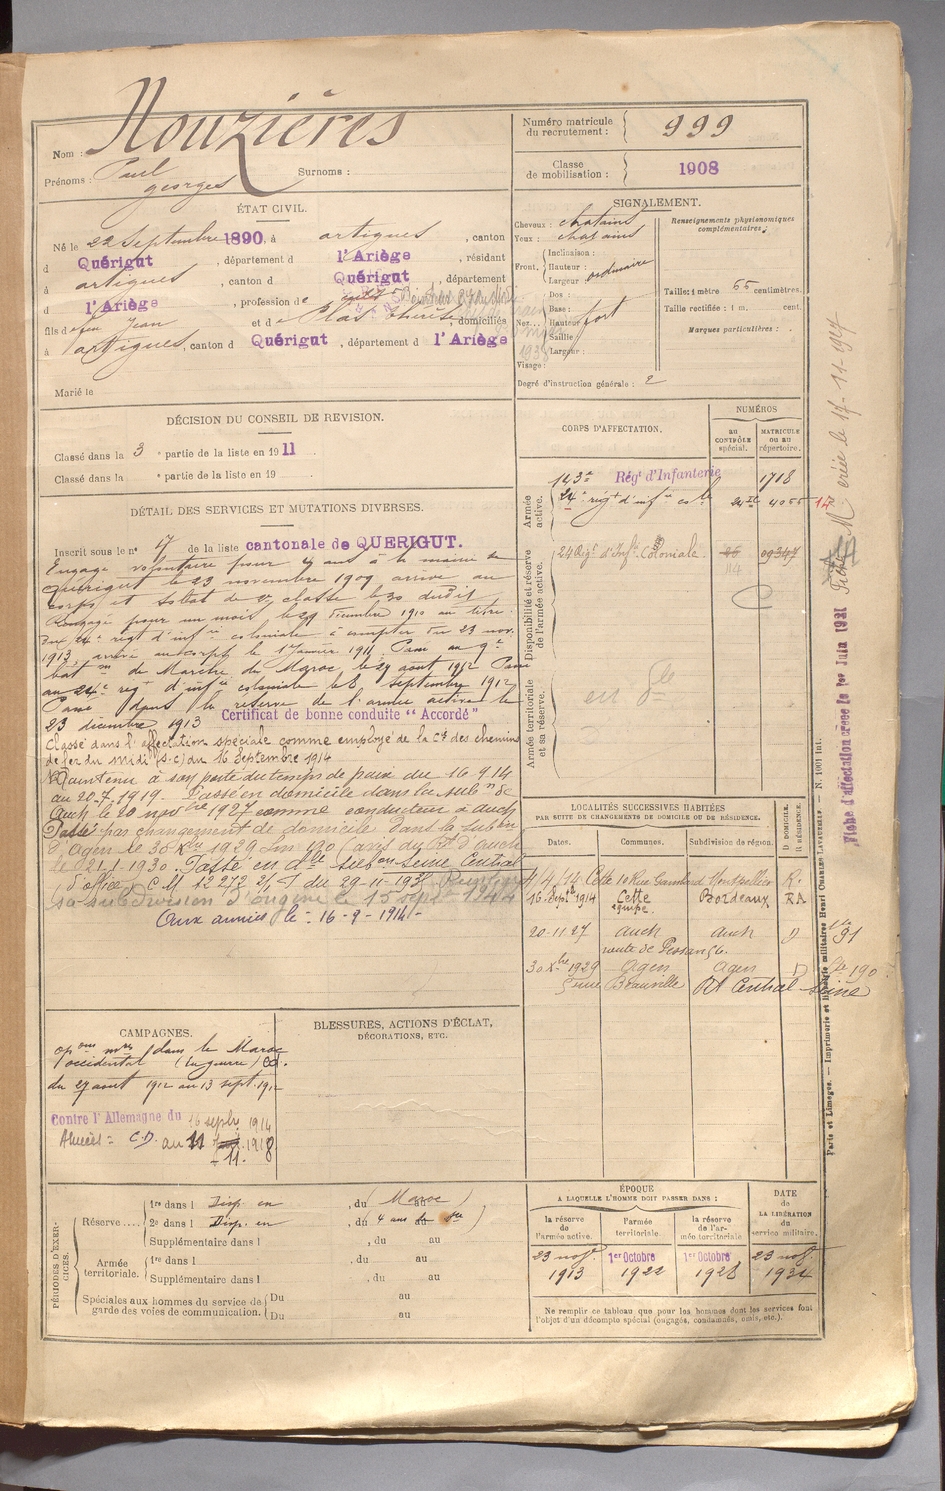 Nom : Nouzières
Prénoms : Paul Georges Surnoms :
Numéro matricule du recrutement : 999
Classe de mobilisation : 1908
ÉTAT CIVIL.
Né le 22 Septembre 1890, à artigues, canton
d Quérigut, département d l'Ariège, résidant
à artigues, canton de Quérigut, département
d l'Ariège, profession de
fils de feu Jean et de Plas Thérèse, domiciliés
à artigues, canton d Quérigut, département d l'Ariège
Marié le
SIGNALEMENT.
Cheveux : chatains
Yeux : chatains
Front, Inclinaison :
Hauteur :
Largeur : ordinaire
Nez... Dos :
Base :
Hauteur fort
Saillie
Largeur :
Visage :
Degré d'instruction générale : 2
Renseignements physionomiques complémentaires :
Taille : 1 mètre 65 centimètres.
Taille rectifiée : 1 m. cent.
Marques particulières :
DÉCISION DU CONSEIL DE REVISION.
Classé dans la 3 e partie de la liste en 1911.
Classé dans la e partie de la liste en 19 .
DÉTAIL DES SERVICES ET MUTATIONS DIVERSES.
Inscrit sous le n° 17 de la liste cantonale de QUERIGUT.
Engagé volontaire pour 4 ans à la mairie de
Quérigut le 23 novembre 1909 arrivé au
corps et soldat de 2e classe le 30 dudit
Rengagé pour un mois le 29 décembre 1910 au titre
du 24e régt d'infie coloniale à compter du 23 nov.
1913, arrivé au corps le 1 janvier 1911. Passé au 9e
batom de Marche du Maroc le 27 aout 1912 Passé
au 24e régt d'infie coloniale le 8 septembre 1912
Passé dans la réserve de l'armée active le
23 décembre 1913 Certificat de bonne conduite "Accordé"
Classé dans l'affectation spéciale comme employé de la Cie des chemins
de fer du midi (s.c) du 16 Septembre 1914
Maintenu à son poste du temps de paix du 16.9.14
au 20.7.1919. Passé en domicile dans la subon de
Auch le 20 novbre 1927 comme conducteur à Auch
Passé par changement de domicile dans la subon
d'Agen le 30 Xbre 1929
le 21.1.1930. Passé en dlle subon Seine Central
(d'office) C.M 12272 du 29-11-193
sa subdivision d'origine le 15 sept 1944
Aux armées le : 16-9-1914-
CORPS D'AFFECTATION.
NUMÉROS
au CONTRÔLE spécial.
MATRICULE ou au répertoire.
Armée active.
143e Régt d'Infanterie 1718
24e régt d'infie cole 4055
Disponibilité et réserve de l'armée active.
24 Régt d'Infie Coloniale
Armée territoriale et sa réserve.
Fiche d'affectation créée le 1er Juin 1931
créée le 17-11-1927
LOCALITÉS SUCCESSIVES HABITÉES
PAR SUITE DE CHANGEMENTS DE DOMICILE OU DE RÉSIDENCE.
Dates. Communes. Subdivision de région. D DOMICILE. R RÉSIDENCE.
4/4/14 Cette 10 Rue Gambend Montpellier R.
16 Septe 1914 Cette équipe. Bordeaux RA
20-11-27 Auch Auch D 91
route de Pessan 56.
30 Xbre 1929 Agen Agen D 190
Beauville Rt Central Seine
CAMPAGNES.
opons mres dans le Maroc
occidental (en guerre)
du 27 aout 1912 au 13 sept. 1912
Contre l'Allemagne du 16 septb 1914
C.D. au 11 11. 1918
BLESSURES, ACTIONS D'ÉCLAT,
DÉCORATIONS, ETC.
PÉRIODES D'EXERCICES.
Réserve.... 1re dans l Disp. en , du (Maroc)
2e dans l Disp. en , du 4 ans
Supplémentaire dans l , du au
Armée territoriale. 1re dans l , du au
Supplémentaire dans l , du au
Spéciales aux hommes du service de garde des voies de communication. Du au
Du au
ÉPOQUE
A LAQUELLE L'HOMME DOIT PASSER DANS :
la réserve de l'armée active.
l'armée territoriale.
la réserve de l'armée territoriale
DATE de LA LIBÉRATION du service militaire.
23 nov. 1913
1er Octobre 1922
1er Octobre 1928
23 nov. 1934
Ne remplir ce tableau que pour les hommes dont les services font l'objet d'un décompte spécial (engagés, condamnés, omis, etc.).
Paris et Limoges. — Imprimerie et librairie militaires Henri CHARLES-LAVAUZELLE — N. 1001 Int.